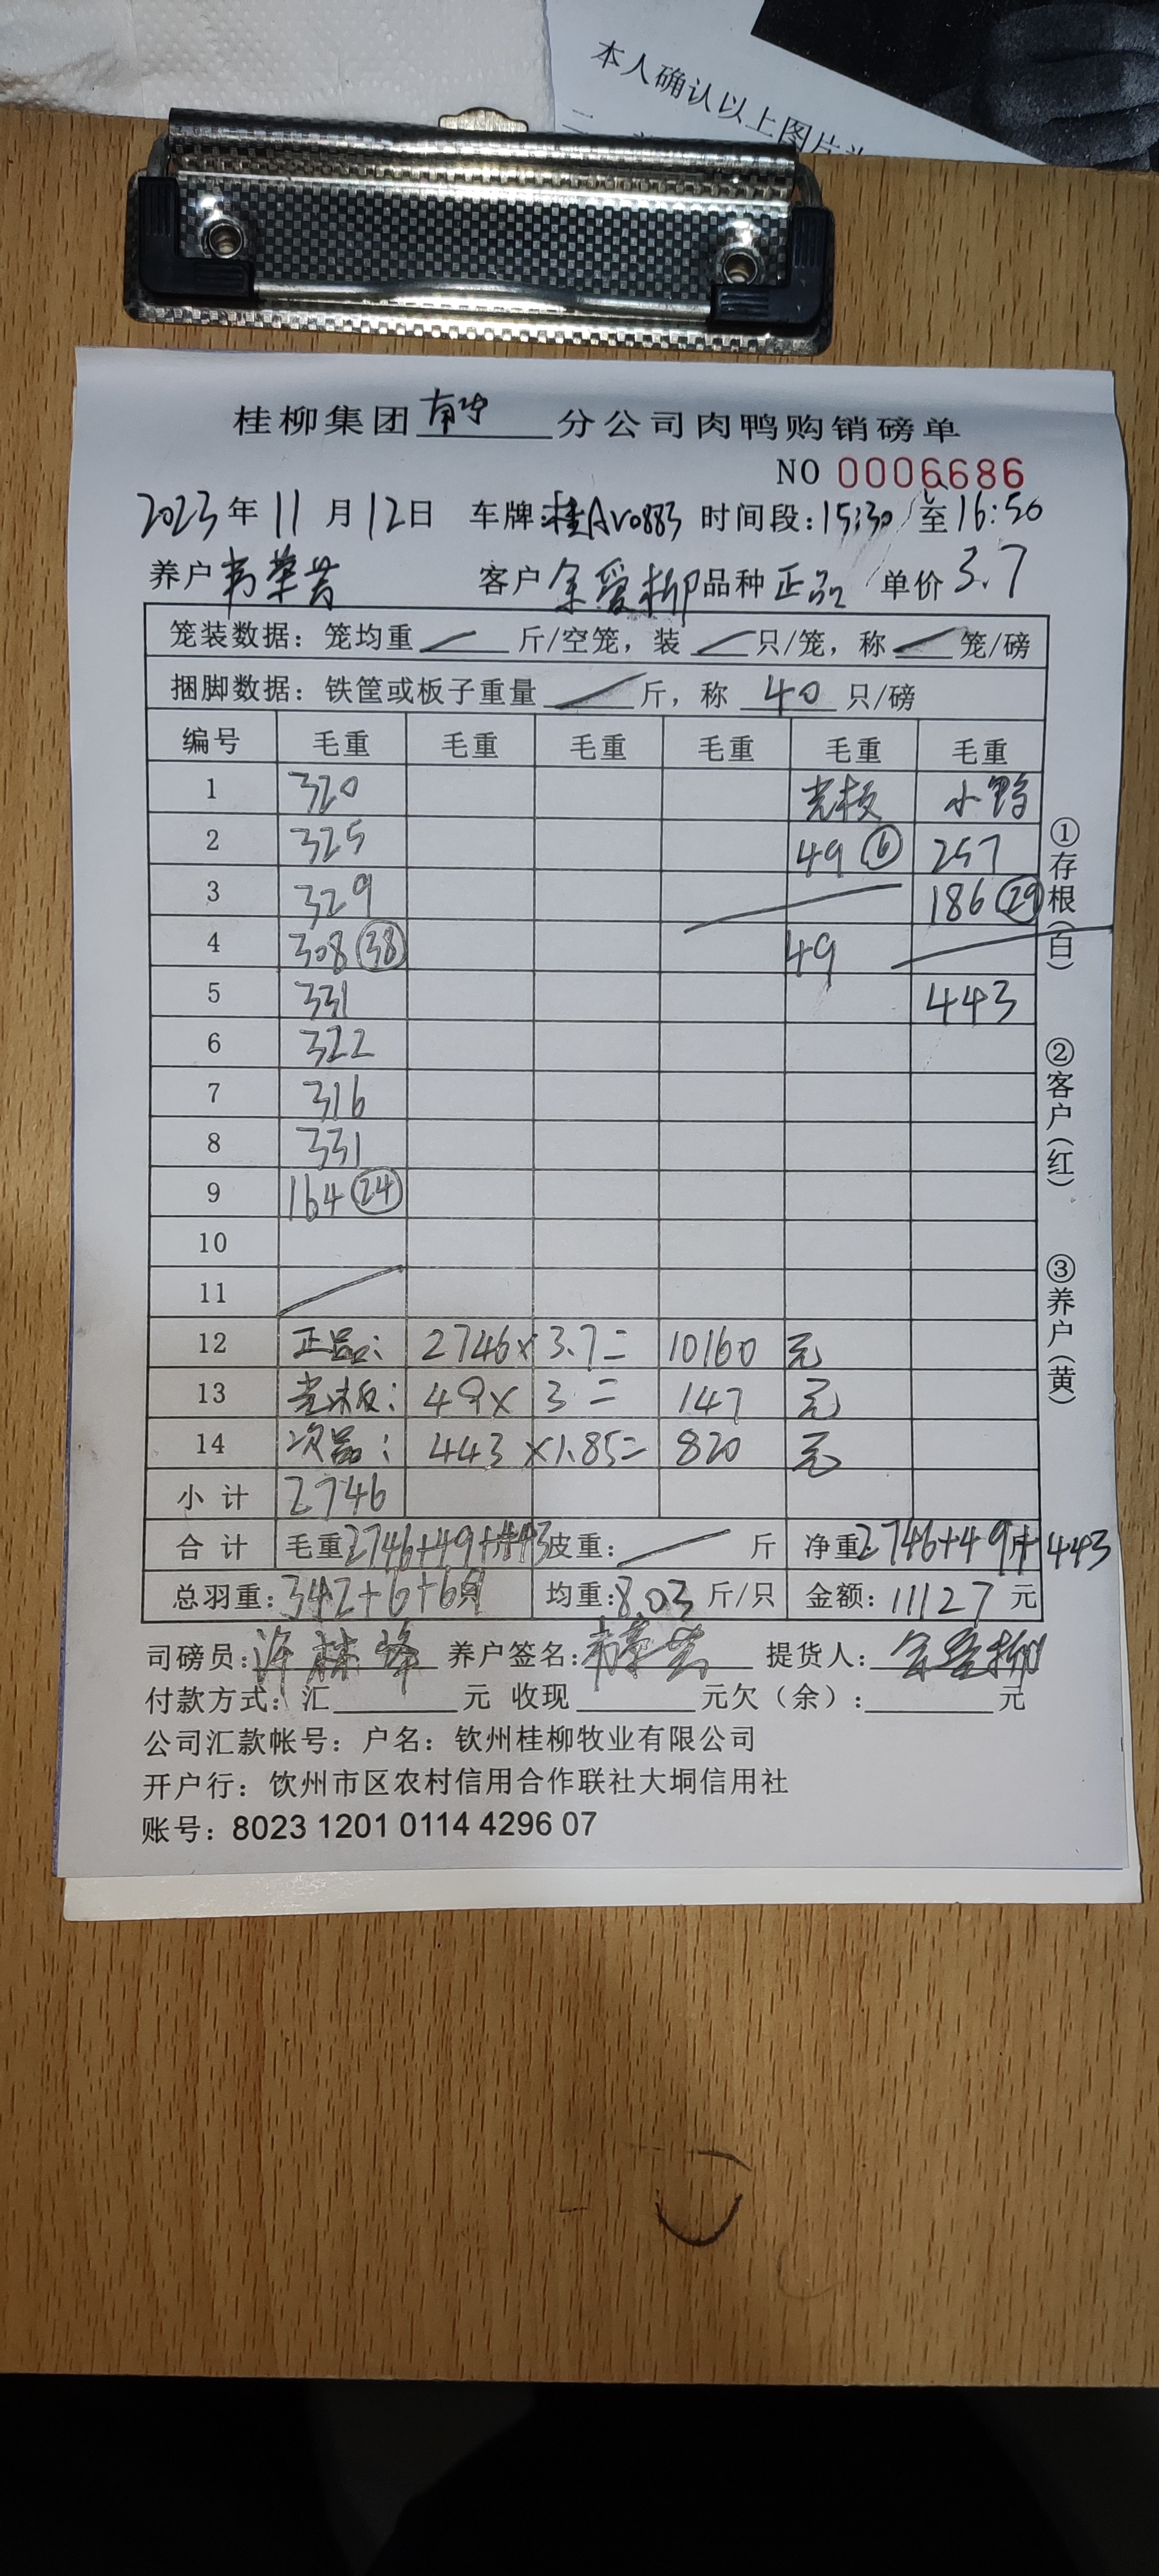 本人确认以上图片
桂柳集团 南宁 分公司肉鸭购销磅单
NO 0006686
2023年11月12日 车牌:桂AV0883 时间段:15:30至16:50
养户 韦荣芳 客户 余爱柳 品种 正品 单价 3.7
笼装数据:笼均重 / 斤/空笼,装 / 只/笼,称 / 笼/磅
捆脚数据:铁筐或板子重量 / 斤,称 40 只/磅
编号 毛重 毛重 毛重 毛重 毛重 毛重
1 320 小鸭
2 325 49 ⑥ 257
3 329 186 (29)
4 308 (38) 49
5 331 443
6 322
7 316
8 331
9 164 (24)
10
11
12 正品: 2746× 3.7= 10160 元
13 49× 3= 147 元
14 次品: 443 ×1.85= 820 元
小计 2746
合计 毛重2746+49+443斤 皮重: / 斤 净重2746+49+443
总羽重:342+6+69 均重:8.03 斤/只 金额:11127元
司磅员:许林峰 养户签名:韦荣芳 提货人:余爱柳
付款方式:汇 元 收现 元欠(余): 元
公司汇款帐号:户名:钦州桂柳牧业有限公司
开户行:饮州市区农村信用合作联社大垌信用社
账号:8023 1201 0114 4296 07
①存根(白)
②客户(红)
③养户(黄)